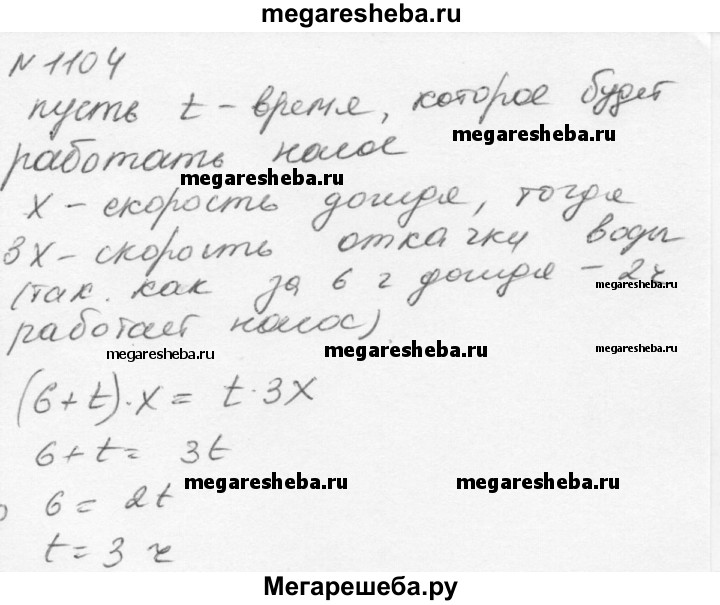 megaresheba.ru
N 1104
пусть t - время, которое будет
megaresheba.ru
работать насос
megaresheba.ru
x - скорость дождя, тогда
3x - скорость откачки воды
(так как за 6 ч дождя - 2ч
megaresheba.ru
работает насос)
megaresheba.ru megaresheba.ru megaresheba.ru
(6+t)·x = t·3x
6+t = 3t
megaresheba.ru megaresheba.ru
6 = 2t
t = 3 ч
Мегарешеба.ру